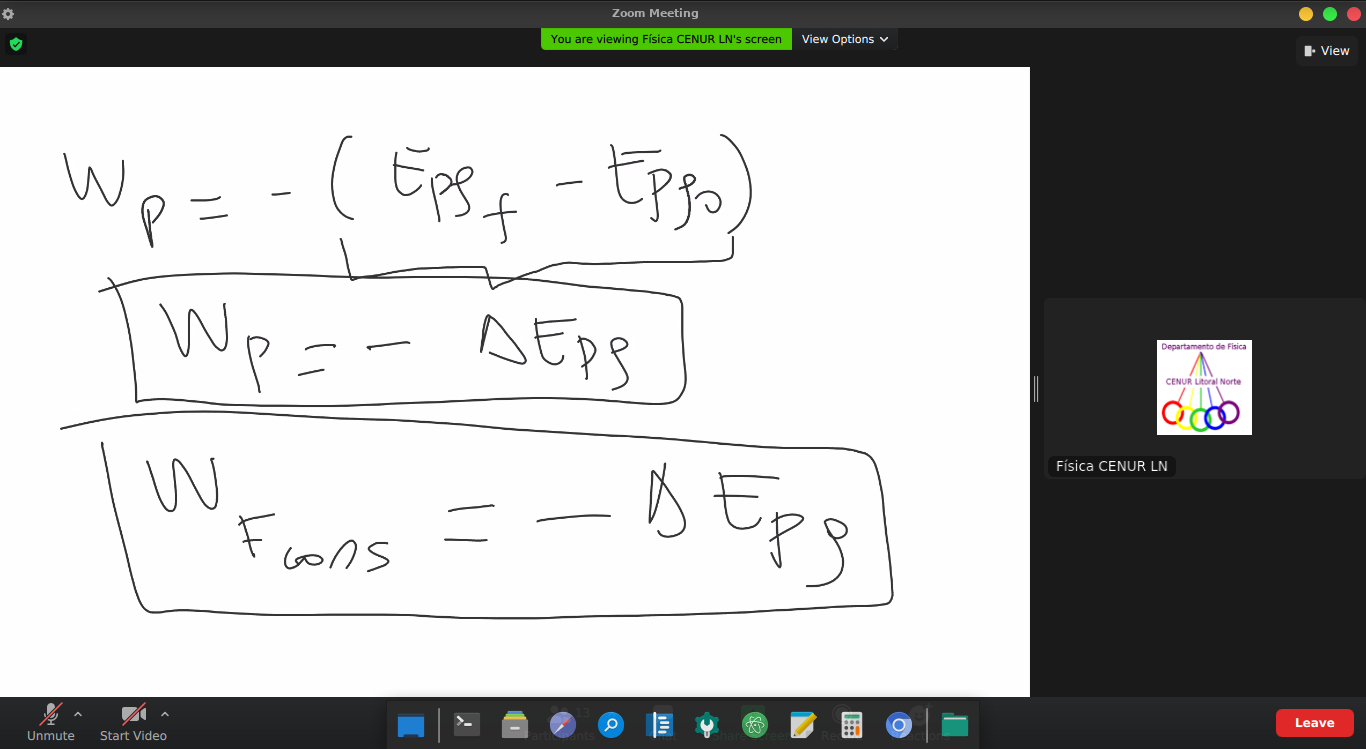 Zoom Meeting
You are viewing Física CENUR LN's screen
View Options
View
W_p = - (E_pg_f - E_pg_o)
W_p = - ΔE_pg
W_Fcons = - ΔE_pg
Departamento de Física
CENUR Litoral Norte
Física CENUR LN
Unmute
Start Video
Participants
Leave